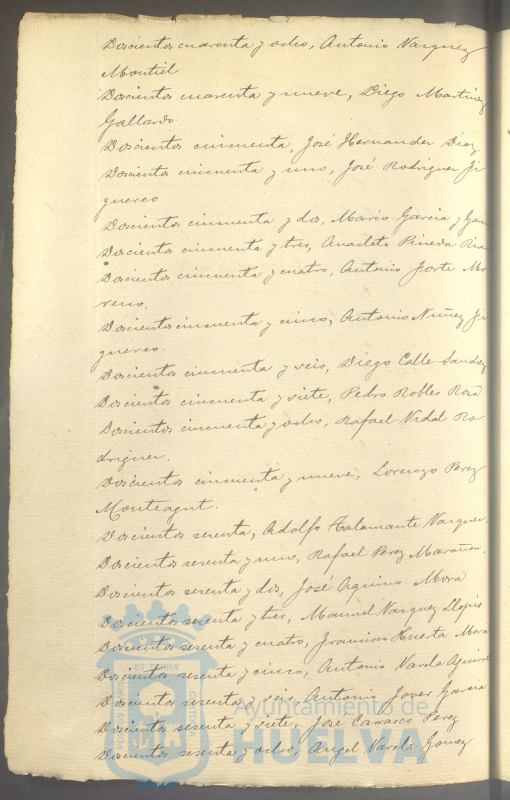 Doscientos cuarenta y ocho, Antonio Vazquez
Montiel
Doscientos cuarenta y nueve, Diego Martínez
Gallardo.
Doscientos cincuenta, José Hernandez Diaz
Doscientos cincuenta y uno, José Rodriguez Ji
guereo
Doscientos cincuenta y dos, Mario Garcia y
Doscientos cincuenta y tres, Anacleto Pineda
Doscientos cincuenta y cuatro, Antonio Forte Mo
reno.
Doscientos cincuenta y cinco, Antonio Nuñez Ji
guereo.
Doscientos cincuenta y seis, Diego Calle Sanchez
Doscientos cincuenta y siete, Pedro Robles Rosa
Doscientos cincuenta y ocho, Rafael Vidal Ro
driguez.
Doscientos cincuenta y nueve, Lorenzo Perez
Monteagut.
Doscientos sesenta, Adolfo Talamante Vazquez.
Doscientos sesenta y uno, Rafael Perez Marañon.
Doscientos sesenta y dos, José Aquino Mora
Doscientos sesenta y tres, Manuel Vazquez Llopis
Doscientos sesenta y cuatro, Francisco Huerta Mora
Doscientos sesenta y cinco, Antonio Varela
Doscientos sesenta y seis, Antonio Jover Garcia
Doscientos sesenta y siete, José Carrasco Perez
Doscientos sesenta y ocho, Angel Varela Gomez
ET TERRÆ
Ayuntamiento de
HUELVA